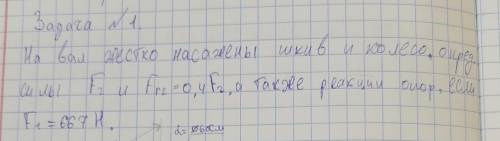 Задача №1.
На вал жестко насажены шкив и колесо. опред
силы F2 и Fr2=0,4F2, а также реакции опор, если
F1=667 Н.